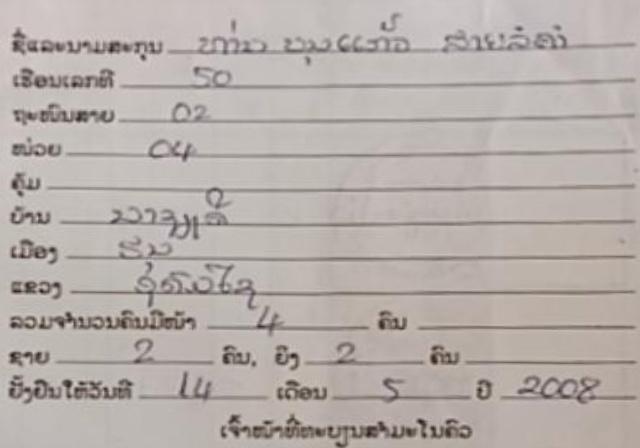 ຊື່ແລະນາມສະກຸນ ທ່ານ ບຸນແກ້ວ
ເຮືອນເລກທີ 50
ຖະໜົນສາຍ 02
ໜ່ວຍ 04
ຄຸ້ມ
ບ້ານ
ເມືອງ ຮຸນ
ແຂວງ ອຸດົມໄຊ
ລວມຈຳນວນຄົນມີໜ້າ 4 ຄົນ
ຊາຍ 2 ຄົນ, ຍິງ 2 ຄົນ
ຢັ້ງຢືນໃຫ້ວັນທີ 14 ເດືອນ 5 ປີ 2008
ເຈົ້າໜ້າທີ່ທະບຽນສຳມະໂນຄົວ